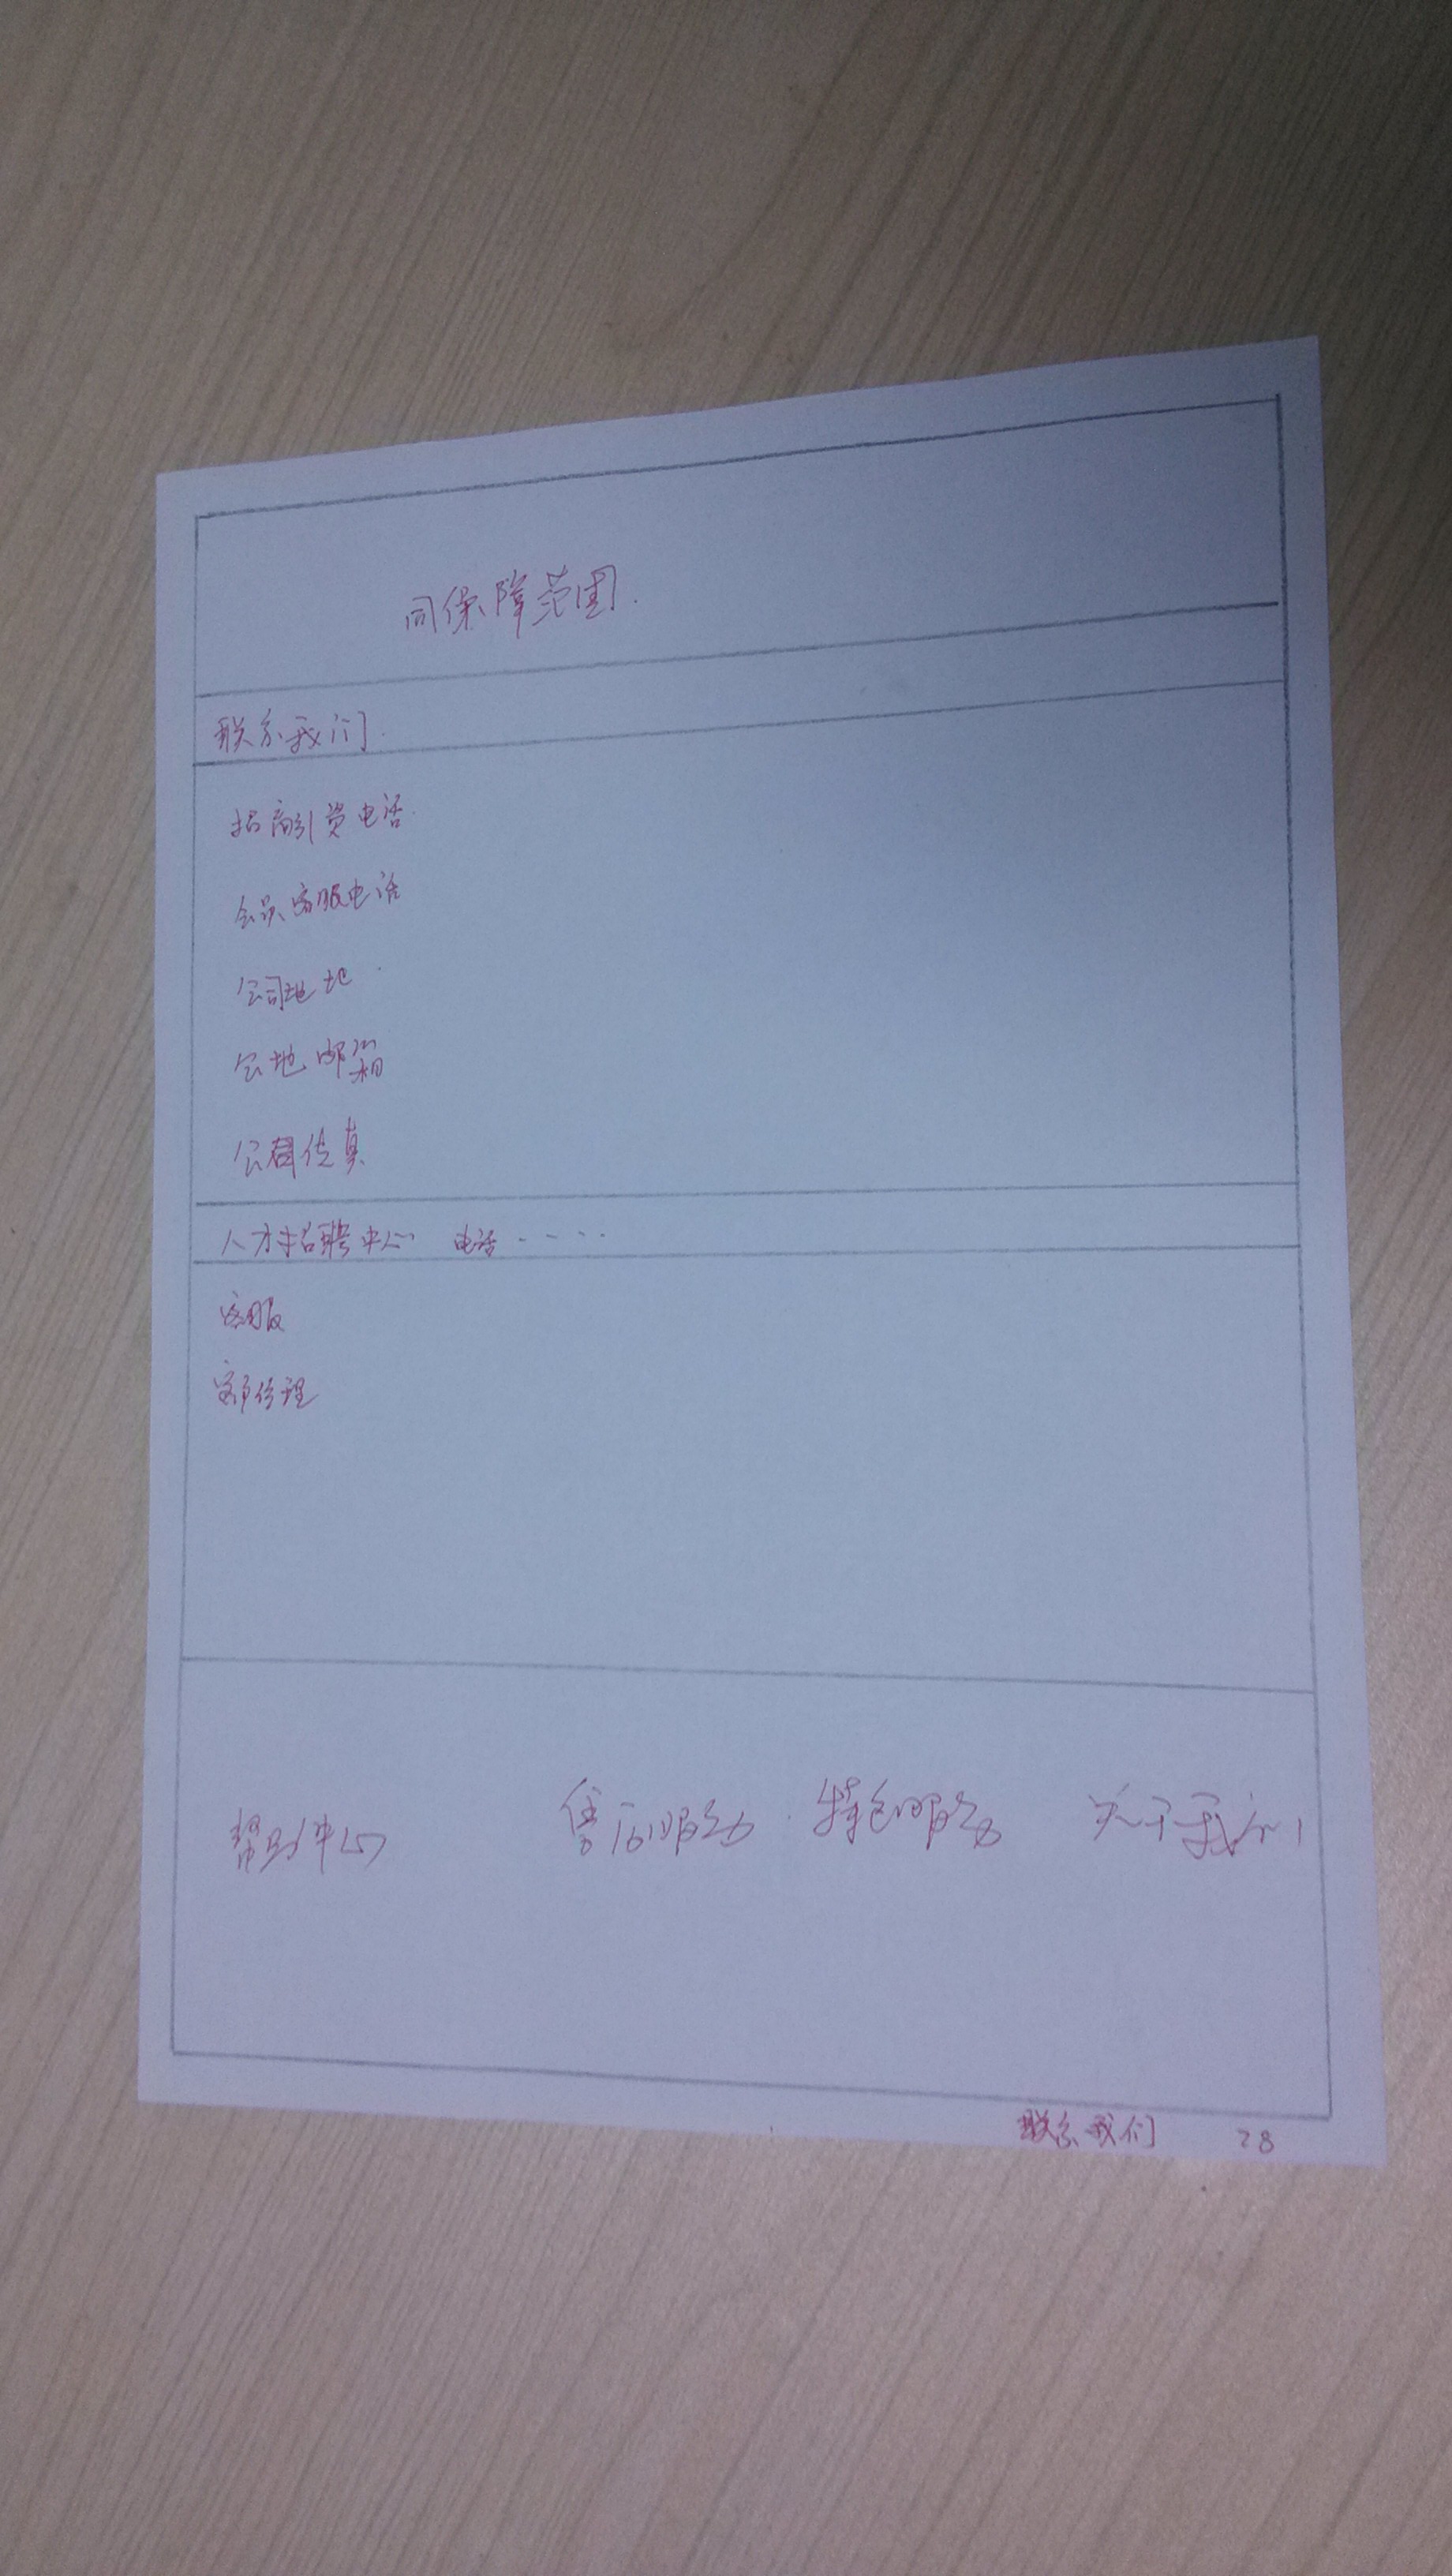 同保障范围.
联系我们.
招商引资电话.
会员客服电话
公司地址
公地邮箱
公司传真
人才招聘中心 电话....
客服
客户经理
帮助中心 售后服务 特色服务 关于我们
联系我们 28